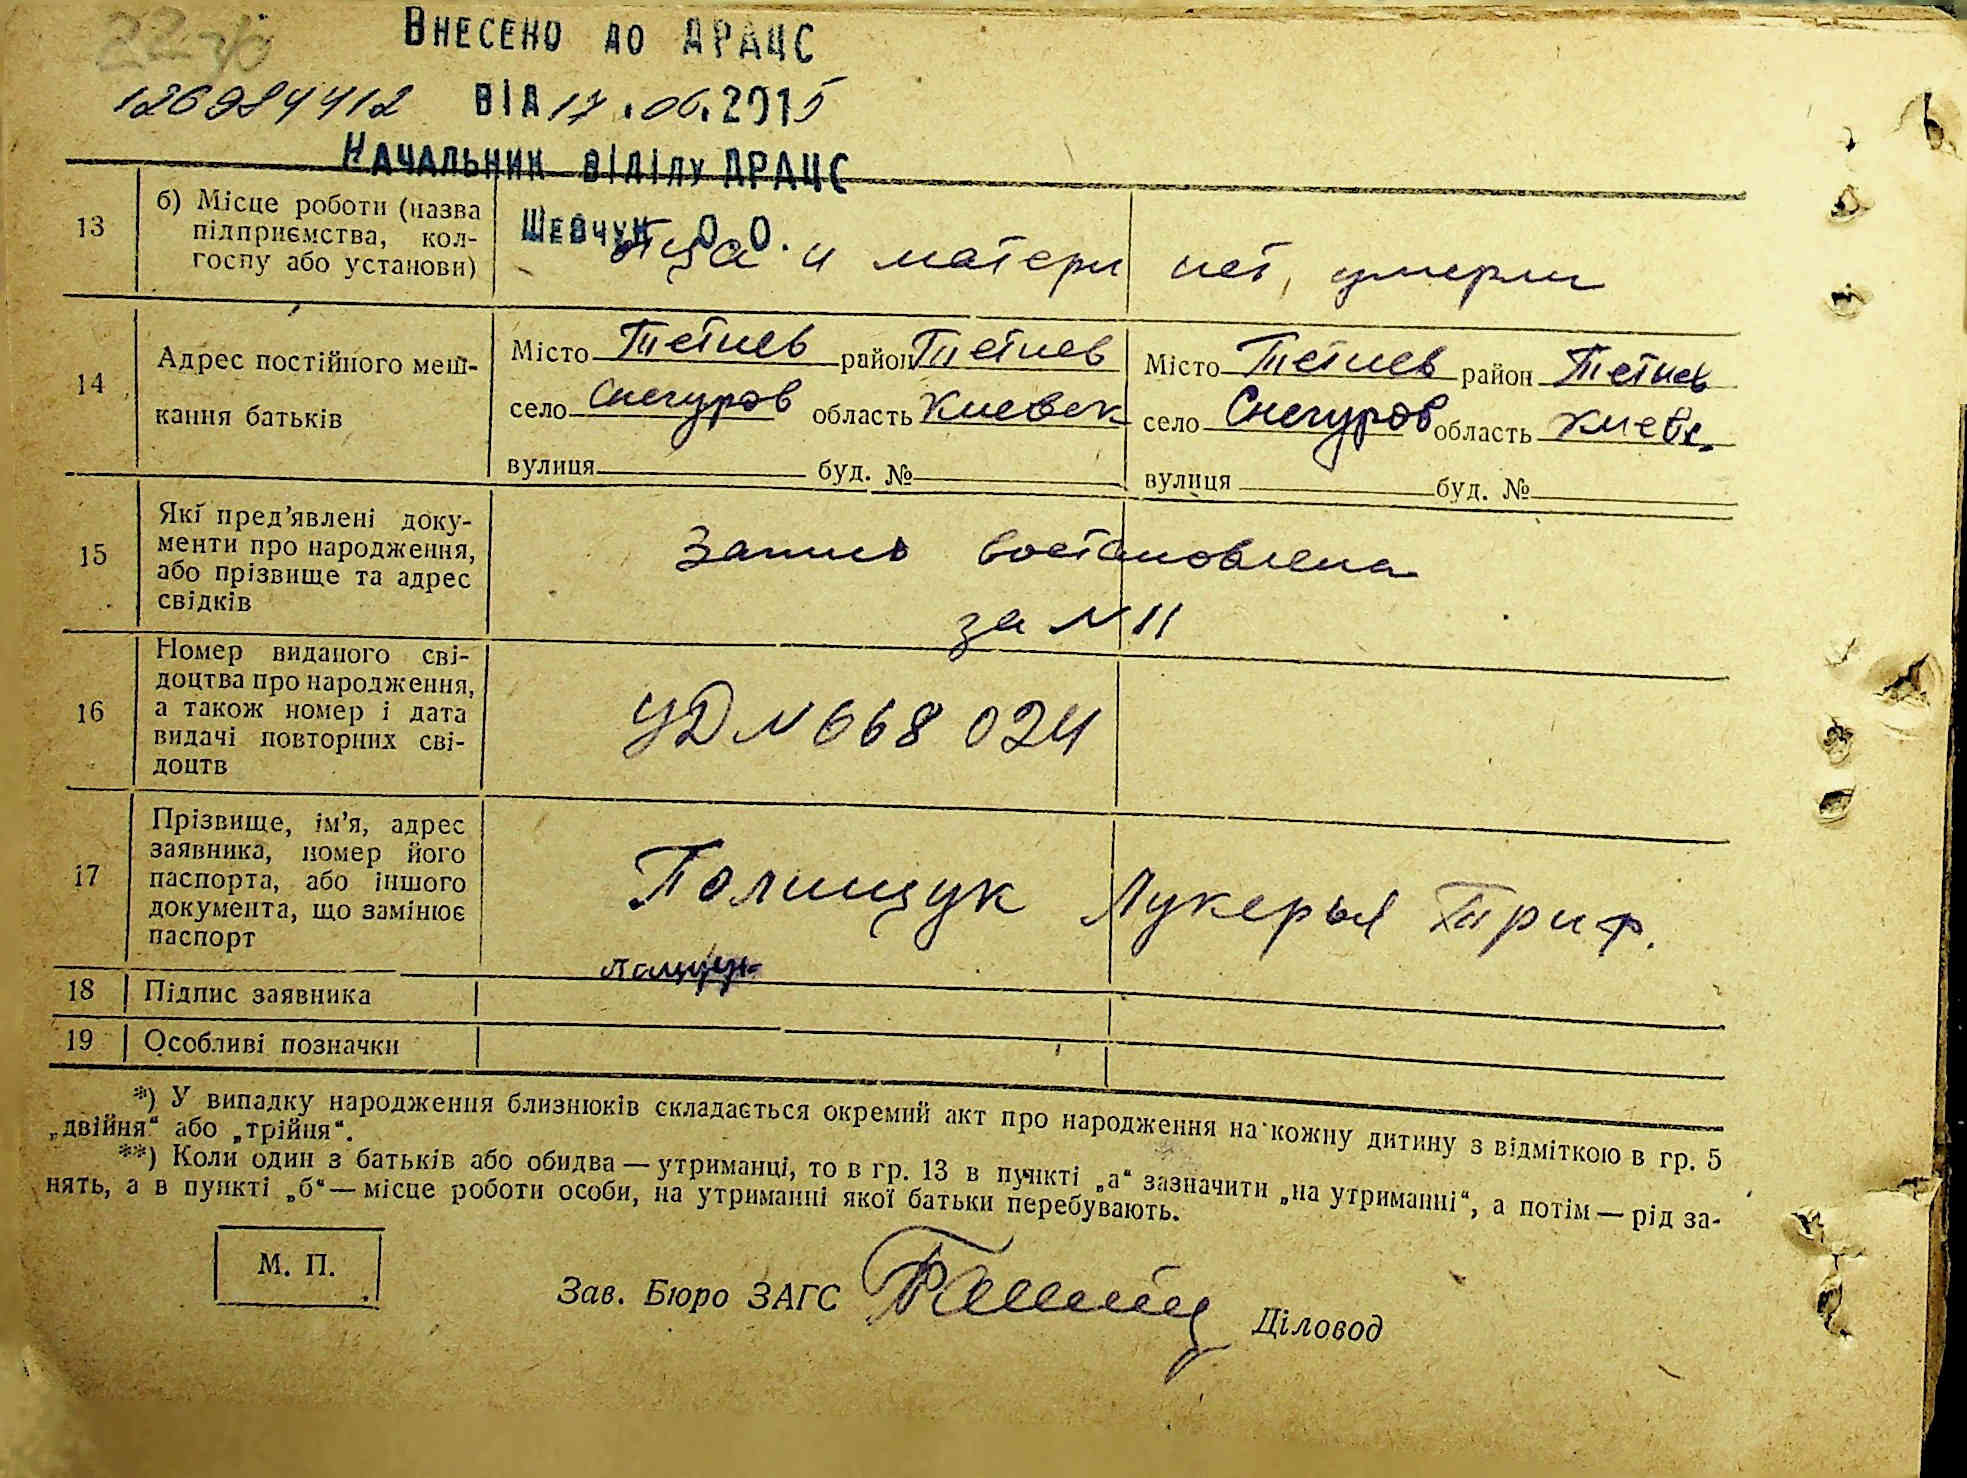 Внесено до ДРАЦС
126984412 від 17.06.2015
Начальник відділу ДРАЦС
Шевчук О.О.
13 б) Місце роботи (назва
підприємства, кол-
госпу або установи)
отца и матери нет, умерли
14 Адрес постійного меш-
кання батьків
Місто Тетиев район Тетиев
село Снегуров область Киевск
вулиця буд. №
Місто Тетиев район Тетиев
село Снегуров область Киевс.
вулиця буд. №
15 Які пред'явлені доку-
менти про народження,
або прізвище та адрес
свідків
Запись востановлена
за N 11
16 Номер виданого сві-
доцтва про народження,
а також номер і дата
видачі повторних сві-
доцтв
УД N 668024
17 Прізвище, ім'я, адрес
заявника, номер його
паспорта, або іншого
документа, що замінює
паспорт
Полищук Лукерья Триф.
18 Підпис заявника
19 Особливі позначки
*) У випадку народження близнюків складається окремий акт про народження на кожну дитину з відміткою в гр. 5
„двійня“ або „трійня“.
**) Коли один з батьків або обидва — утриманці, то в гр. 13 в пункті „а“ зазначити „на утриманні“, а потім — рід за-
нять, а в пункті „б“ — місце роботи особи, на утриманні якої батьки перебувають.
М. П.
Зав. Бюро ЗАГС
Діловод